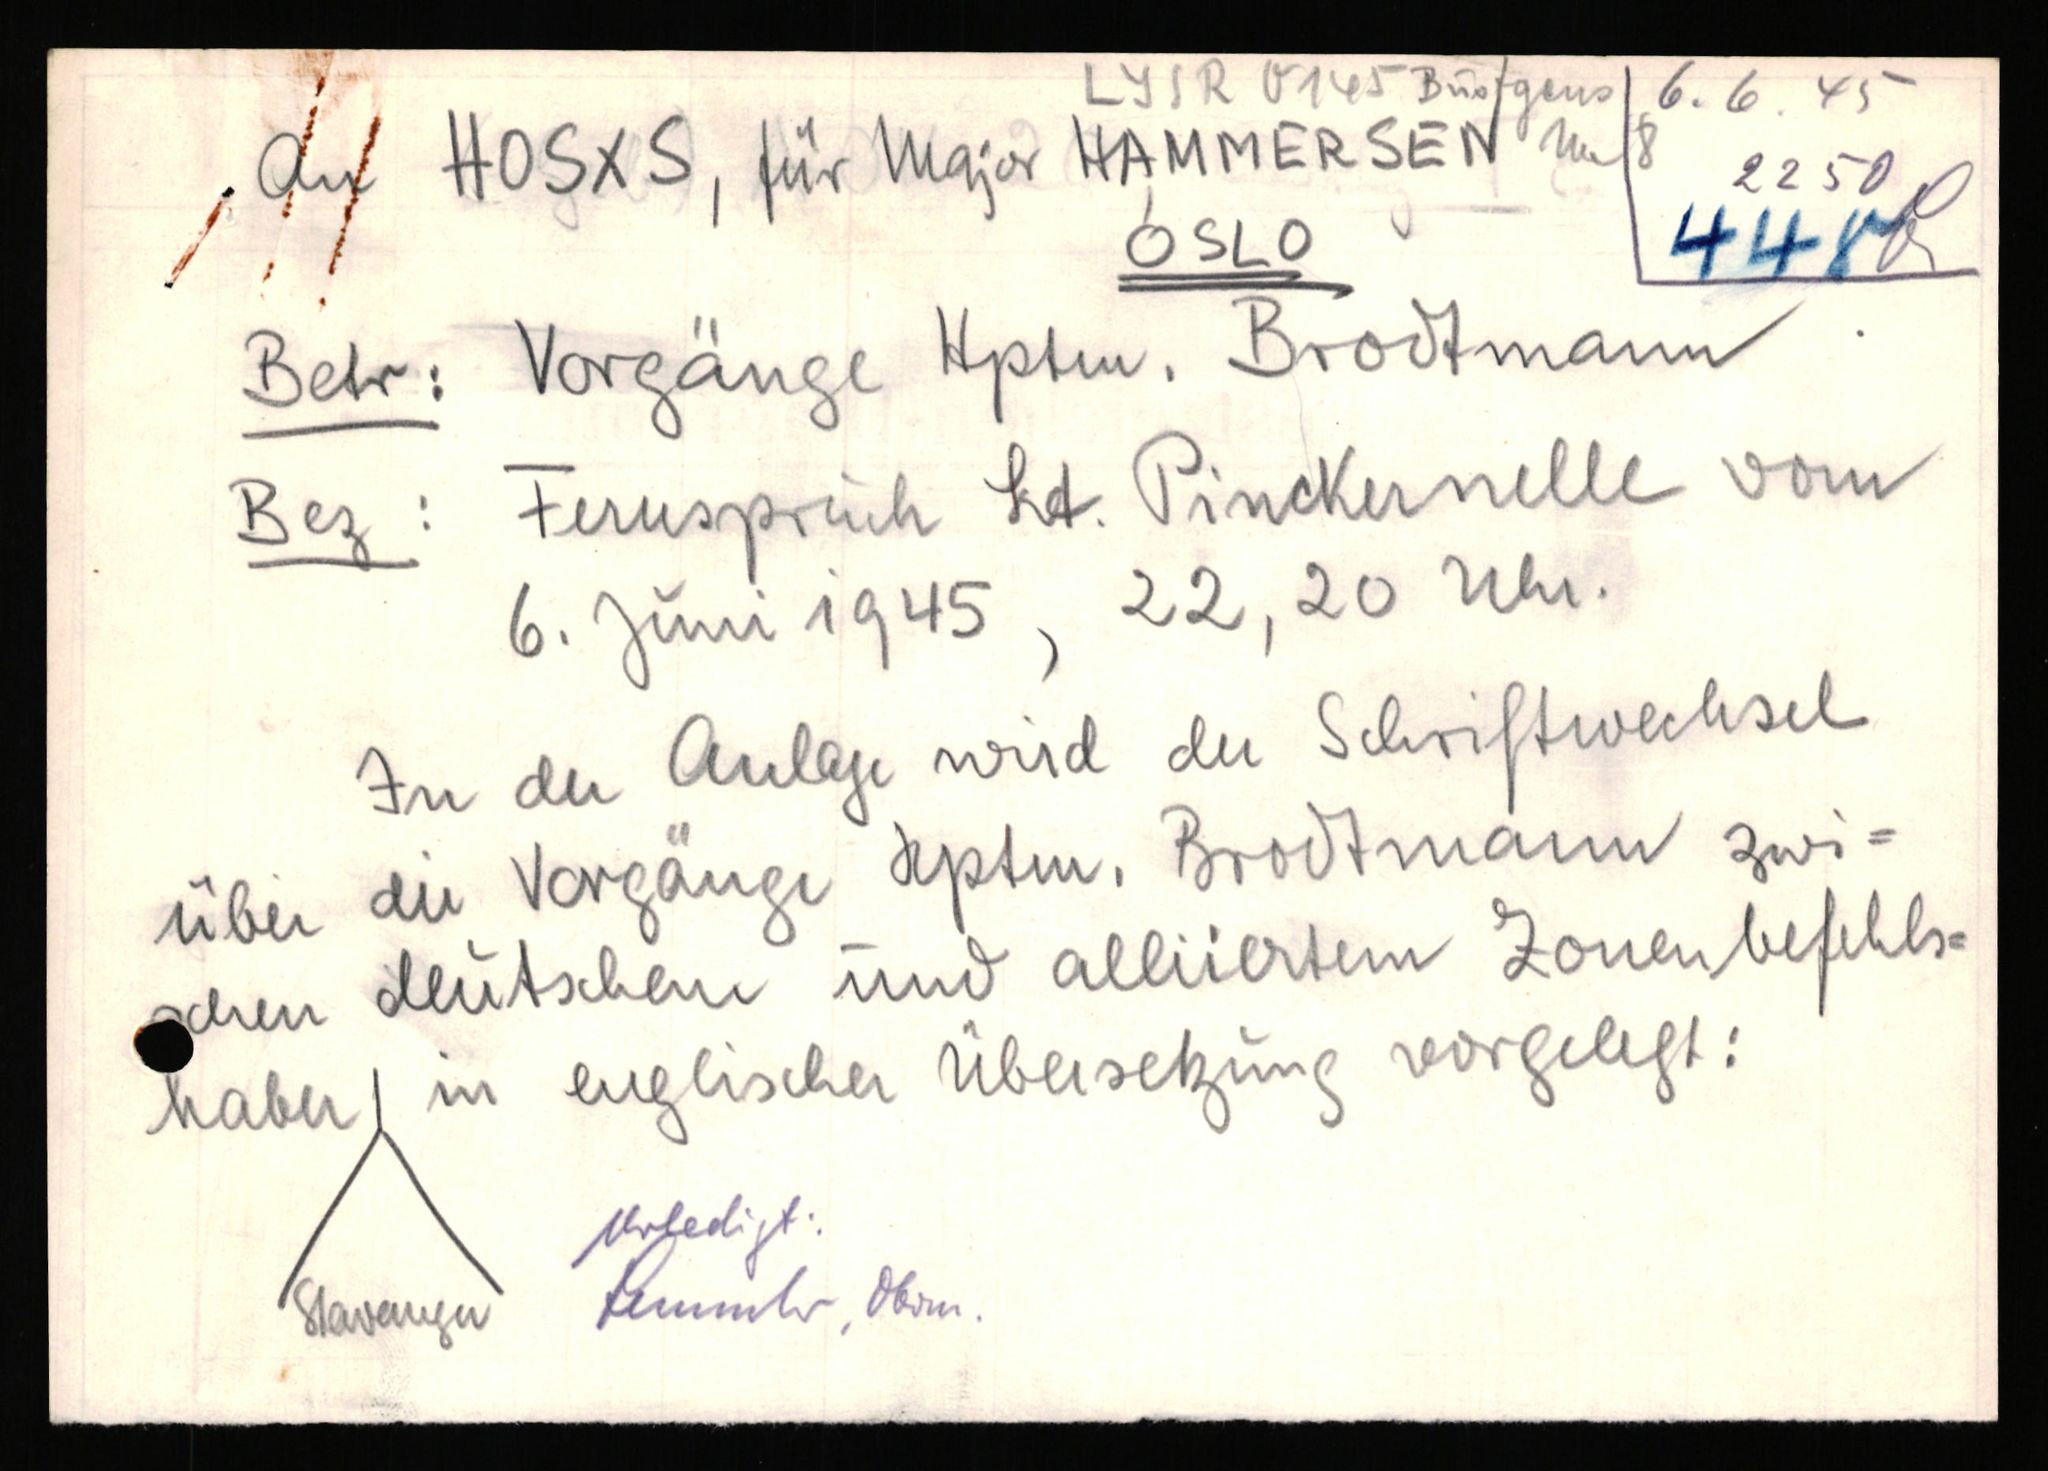 LYSR 0145 Büstgens 6. 6. 45
An HOSXS, für Major HAMMERSEN
2250
OSLO
448
Betr: Vorgänge Hptm. Brodtmann
Bez: Fernspruch Lt. Pinckernelle vom
6. Juni 1945, 22,20 Uhr.
In der Anlage wird der Schriftwechsel
über die Vorgänge Hptm. Brodtmann zwi=
schen deutschem und alliiertem Zonenbefehls=
haber in englischer Übersetzung vorgelegt:
Stavanger
erledigt: